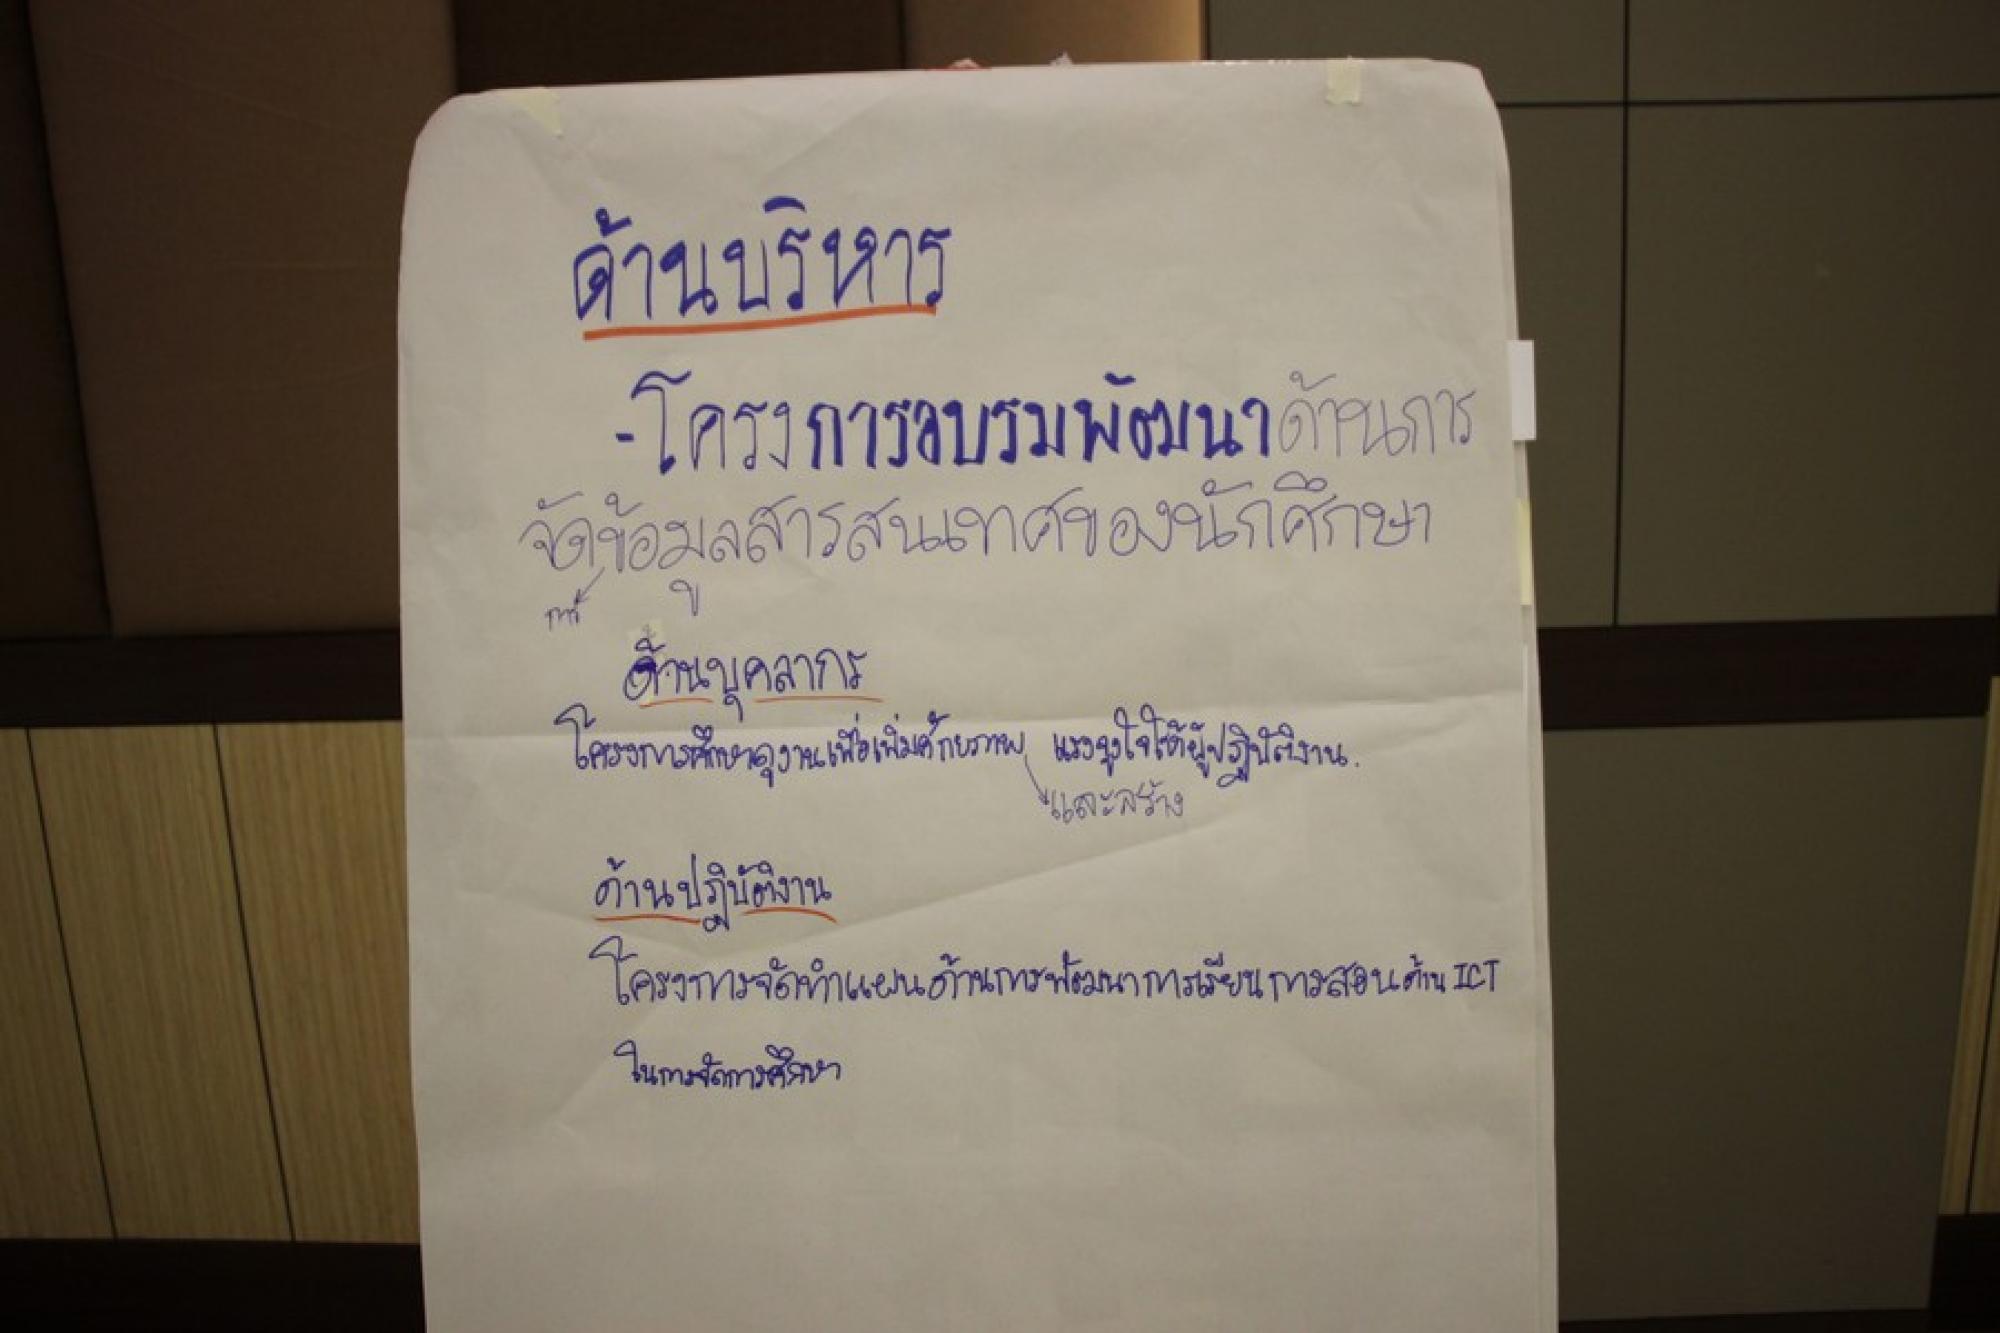 ด้านบริหาร
-โครงการอบรมพัฒนาด้านการ
จัดข้อมูลสารสนเทศของนักศึกษา
การ
ด้านบุคลากร
โครงการศึกษาดูงานเพื่อเพิ่มศักยภาพ แรงจูงใจให้ผู้ปฏิบัติงาน.
และสร้าง
ด้านปฏิบัติงาน
โครงการจัดทำแผนด้านการพัฒนาการเรียนการสอนด้าน ICT
ในการจัดการศึกษา